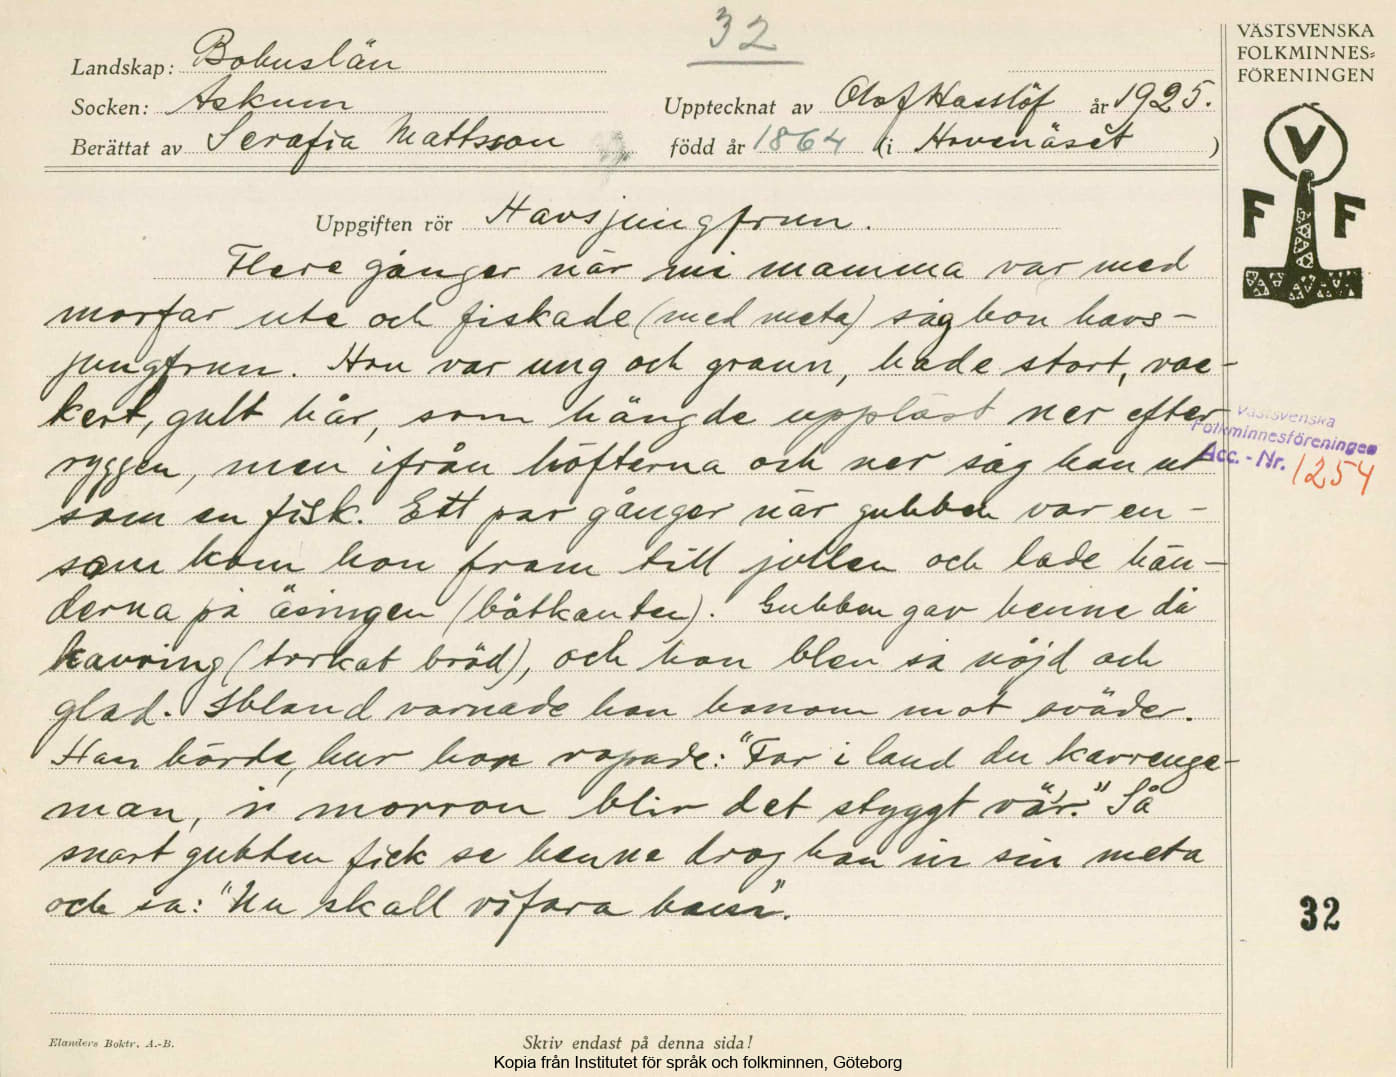 32
VÄSTSVENSKA
FOLKMINNES=
FÖRENINGEN
Landskap: Bohuslän
Socken: Askum
Upptecknat av Olof Hasslöf år 1925.
Berättat av Serafia Mattsson
född år 1864 (i Hovenäset )
V
F F
Uppgiften rör Havsjungfrun.
Flere gånger när mi mamma var med
morfar ute och fiskade (med meta) såg hon havs-
jungfrun. Hon var ung och grann, hade stort, vac-
kert, gult hår, som hängde upplöst ner efter
ryggen, men ifrån höfterna och ner såg hon ut
som en fisk. Ett par gånger när gubben var en-
sam kom hon fram till jollen och lade hän-
derna på äsingen (båtkanten). Gubben gav henne då
kavring (torkat bröd), och hon blev så nöjd och
glad. Ibland varnade hon honom mot oväder.
Han hörde, hur hon ropade: "Far i land du kavrenge-
man, i morron blir det styggt vär." Så
snart gubben fick se henne drog han in sin meta
och sa: "Nu skall vi fara hem".
Västsvenska
Folkminnesföreningen
Acc. - Nr. 1254
32
Elanders Boktr. A.-B.
Skriv endast på denna sida!
Kopia från Institutet för språk och folkminnen, Göteborg